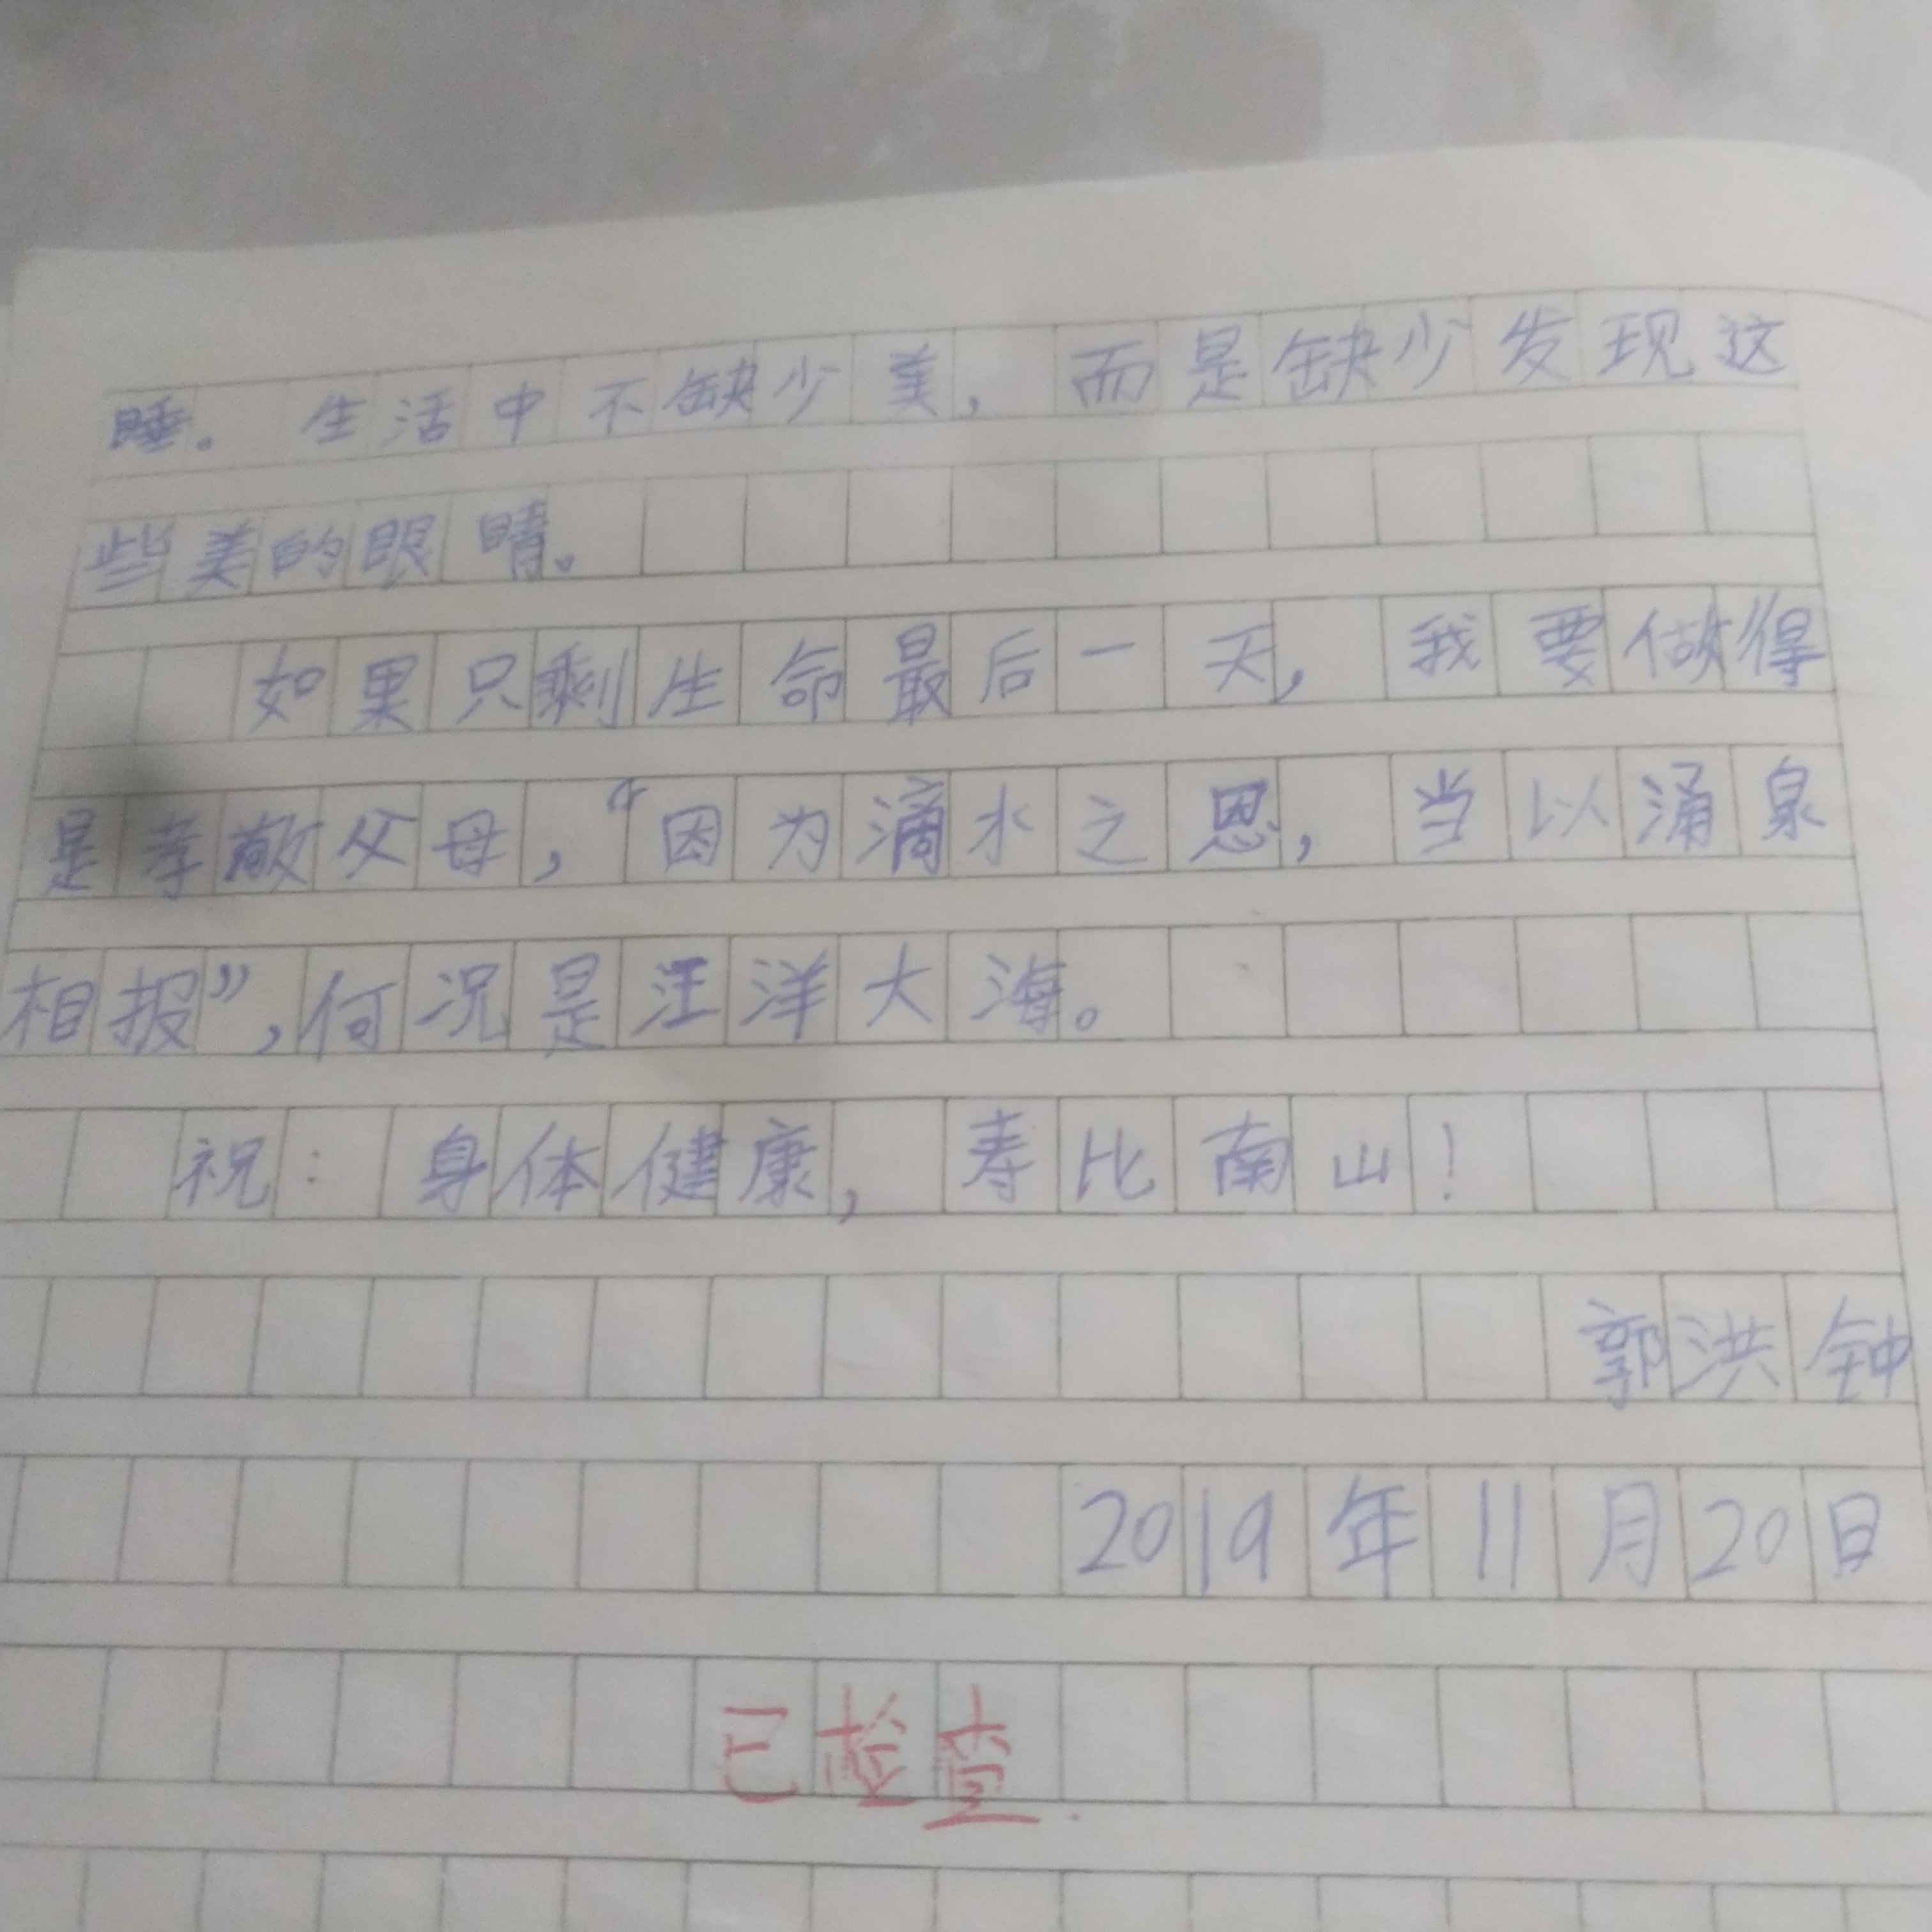 睡。生活中不缺少美，而是缺少发现这
些美的眼睛。
如果只剩生命最后一天，我要做得
是孝敬父母，“因为滴水之恩，当以涌泉
相报”，何况是汪洋大海。
祝：身体健康，寿比南山！
郭洪钟
2019年11月20日
已检查